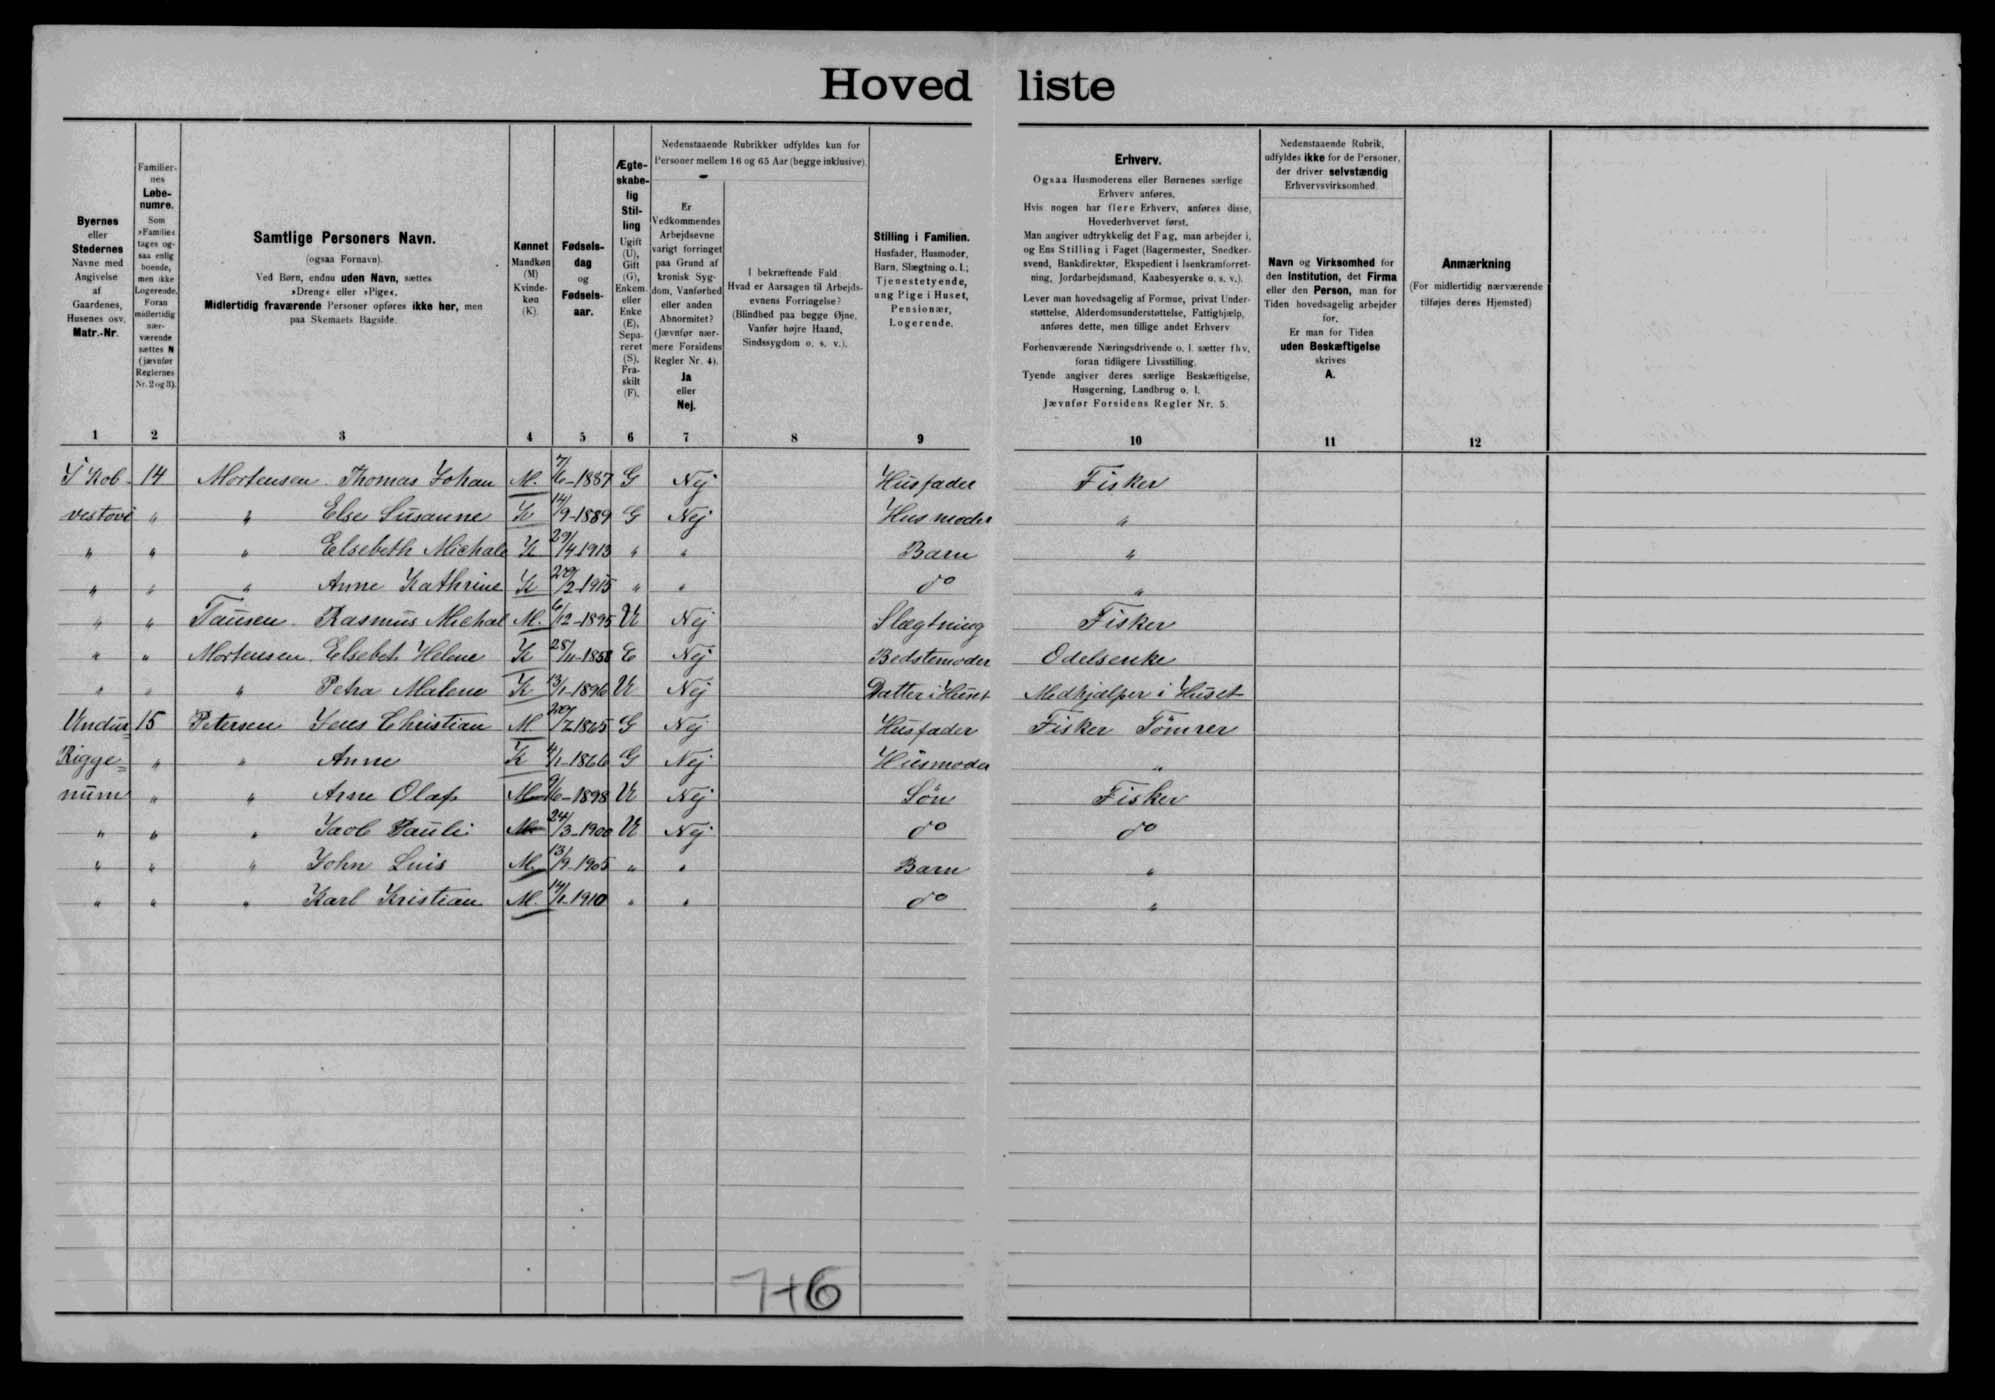 Hoved liste
Byernes eller Stedernes Navne med Angivelse af Gaardenes, Husenes osv. Matr.-Nr.
Familiernes Løbenumre. Som »Familie« tages ogsaa enlig boende, men ikke Logerende. Foran midlertidig nærværende sættes N (jævnfør Reglernes Nr. 2 og 3).
Samtlige Personers Navn.
(ogsaa Fornavn).
Ved Børn, endnu uden Navn, sættes
»Dreng« eller »Pige«.
Midlertidig fraværende Personer opføres ikke her, men
paa Skemaets Bagside.
Kønnet Mandkøn (M) Kvindekøn (K).
Fødselsdag og Fødselsaar.
Ægteskabelig Stilling Ugift (U), Gift (G), Enkem. eller Enke (E), Separeret (S). Fraskilt (F).
Nedenstaaende Rubrikker udfyldes kun for
Personer mellem 16 og 65 Aar (begge inklusive).
Er Vedkommendes Arbejdsevne varigt forringet paa Grund af kronisk Sygdom, Vanførhed eller anden Abnormitet? (Jævnfør nærmere Forsidens Regler Nr. 4). Ja eller Nej.
I bekræftende Fald
Hvad er Aarsagen til Arbejds-
evnens Forringelse?
(Blindhed paa begge Øjne,
Vanfør højre Haand,
Sindssygdom o. s. v.).
Stilling i Familien.
Husfader, Husmoder,
Barn, Slægtning o. l.;
Tjenestetyende,
ung Pige i Huset,
Pensionær,
Logerende.
Erhverv.
Ogsaa Husmoderens eller Børnenes særlige
Erhverv anføres.
Hvis nogen har flere Erhverv, anføres disse,
Hovederhvervet først.
Man angiver udtrykkelig det Fag, man arbejder i,
og Ens Stilling i Faget (Bagermester, Snedker-
svend, Bankdirektør, Ekspedient i Isenkramforret-
ning, Jordarbejdsmand, Kaabesyerske o. s. v.).
Lever man hovedsagelig af Formue, privat Under-
støttelse, Alderdomsunderstøttelse, Fattighjælp,
anføres dette, men tillige andet Erhverv
Forhenværende Næringsdrivende o. l. sætter fhv.
foran tidligere Livsstilling.
Tyende angiver deres særlige Beskæftigelse,
Husgerning, Landbrug o. l.
Jævnfør Forsidens Regler Nr. 5.
Nedenstaaende Rubrik,
udfyldes ikke for de Personer,
der driver selvstændig
Erhvervsvirksomhed
Navn og Virksomhed for
den Institution, det Firma
eller den Person, man for
Tiden hovedsagelig arbejder
for.
Er man for Tiden
uden Beskæftigelse
skrives
A.
Anmærkning
(For midlertidig nærværende
tilføjes deres Hjemsted)
1 2 3 4 5 6 7 8 9 10 11 12
I Kob 14 Mortensen Thomas Johan M. 7/6-1887 G Nej Husfader Fisker
vestovi " " Else Susanne K 14/9-1889 G Nej Husmoder "
" " " Elsebeth Michale K 29/4 1913 " " Barn "
" " " Anne Kathrine K 20/2-1915 " " do "
" " Tausen Rasmus Michal M. 6/12-1895 U Nej Slægtning Fisker
" " Mortensen Elsebet Helene K 28/11-1858 E Nej Bedstemoder Odelsenke
" " " Petra Malene K 13/1-1896 U Nej Datter i Huset Medhjælper i Huset
Undur= 15 Petersen Jens Christian M. 20/2 1865 G Nej Husfader Fisker Tömrer
Rigge= " " Anne K 4/1-1866 G Nej Husmoder "
num " " Arne Olaf M 9/6-1898 U Nej Sön Fisker
" " " Jacob Pauli M 24/3-1900 U Nej do do
" " " John Luis M. 13/9 1905 " " Barn "
" " " Karl Kristian M. 14/1-1910 " " do "
7+6